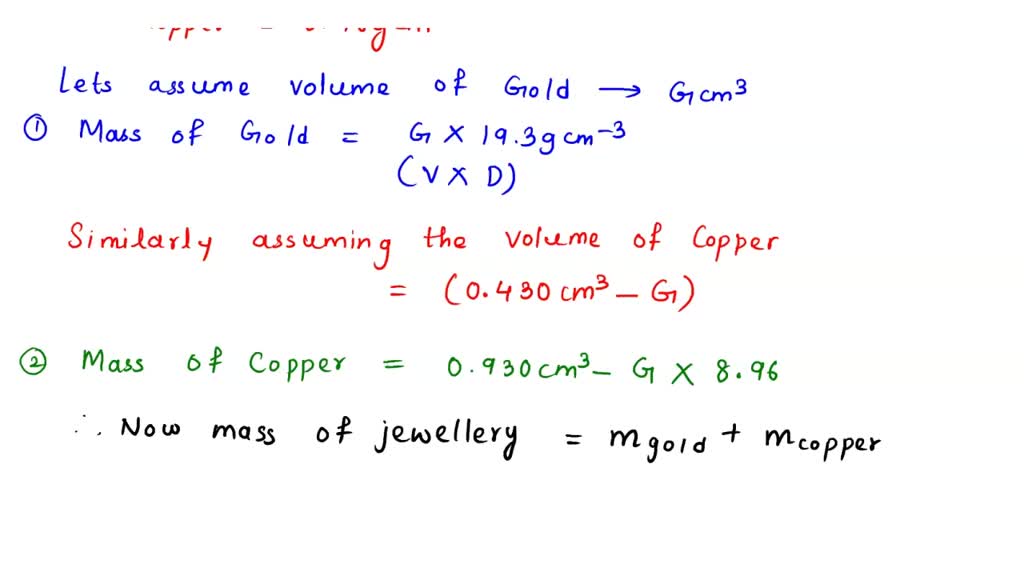 Lets assume volume of Gold → G cm³
① Mass of Gold = G × 19.3 g cm⁻³
(V × D)
Similarly assuming the volume of Copper
= (0.430 cm³ – G)
② Mass of Copper = 0.930 cm³ – G × 8.96
∴ Now mass of jewellery = m gold + m copper